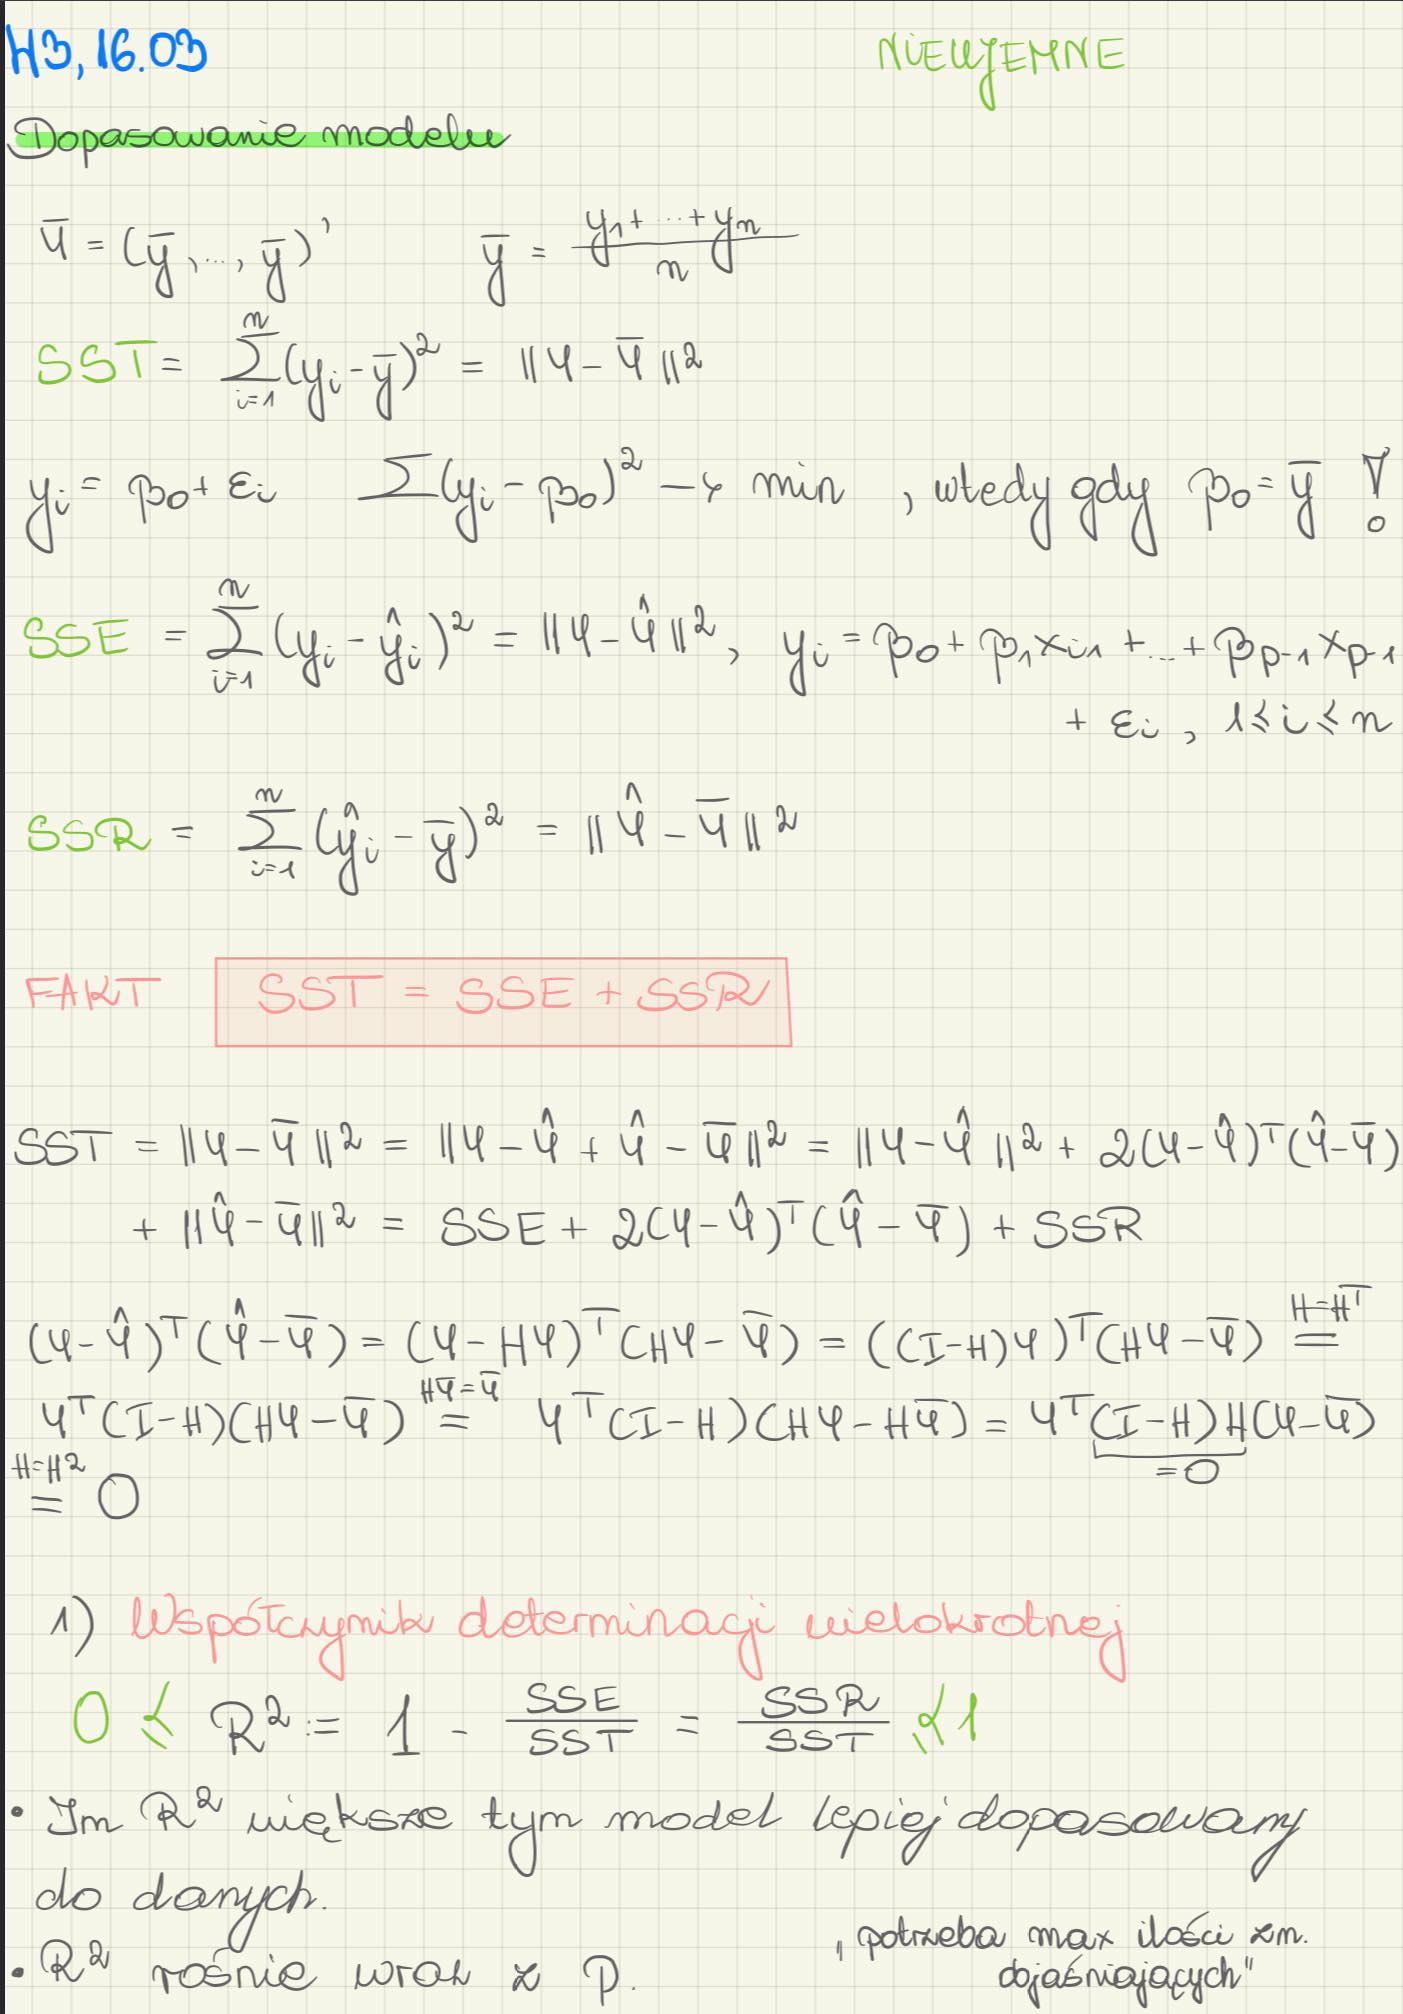 W3, 16.03
NIEUJEMNE
Dopasowanie modelu
Ȳ = (ȳ, ..., ȳ)' ȳ = (y₁ + ... + yₙ)/n
SST = ∑ᵢ₌₁ⁿ (yᵢ - ȳ)² = ||Y - Ȳ||²
yᵢ = β₀ + εᵢ ∑(yᵢ - β₀)² → min , wtedy gdy β₀ = ȳ !
SSE = ∑ᵢ₌₁ⁿ (yᵢ - ŷᵢ)² = ||Y - Ŷ||², yᵢ = β₀ + β₁xᵢ₁ + ... + βₚ₋₁xₚ₋₁
+ εᵢ, 1 ≤ i ≤ n
SSR = ∑ᵢ₌₁ⁿ (ŷᵢ - ȳ)² = ||Ŷ - Ȳ||²
FAKT SST = SSE + SSR
SST = ||Y - Ȳ||² = ||Y - Ŷ + Ŷ - Ȳ||² = ||Y - Ŷ||² + 2(Y - Ŷ)ᵀ(Ŷ - Ȳ)
+ ||Ŷ - Ȳ||² = SSE + 2(Y - Ŷ)ᵀ(Ŷ - Ȳ) + SSR
H=Hᵀ
(Y - Ŷ)ᵀ(Ŷ - Ȳ) = (Y - HY)ᵀ(HY - Ȳ) = ((I - H)Y)ᵀ(HY - Ȳ) =
HȲ=Ȳ
Yᵀ(I - H)(HY - Ȳ) = Yᵀ(I - H)(HY - HȲ) = Yᵀ(I - H)H(Y - Ȳ)
=0
H=H²
= 0
1) Współczynnik determinacji wielokrotnej
0 ≤ R² := 1 - SSE/SST = SSR/SST ≤ 1
• Im R² większe tym model lepiej dopasowany
do danych.
• R² rośnie wraz z p.
"potrzeba max ilości zm.
dojaśniających"